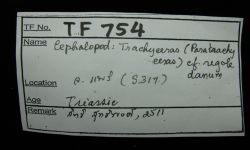 TF No. TF 754
Name Cephalopod: Trachyceras (Paratrachy
ceras) cf. regole
danum
Location จ. แพร่ (S.317)
Age Triassic
Remark 2511